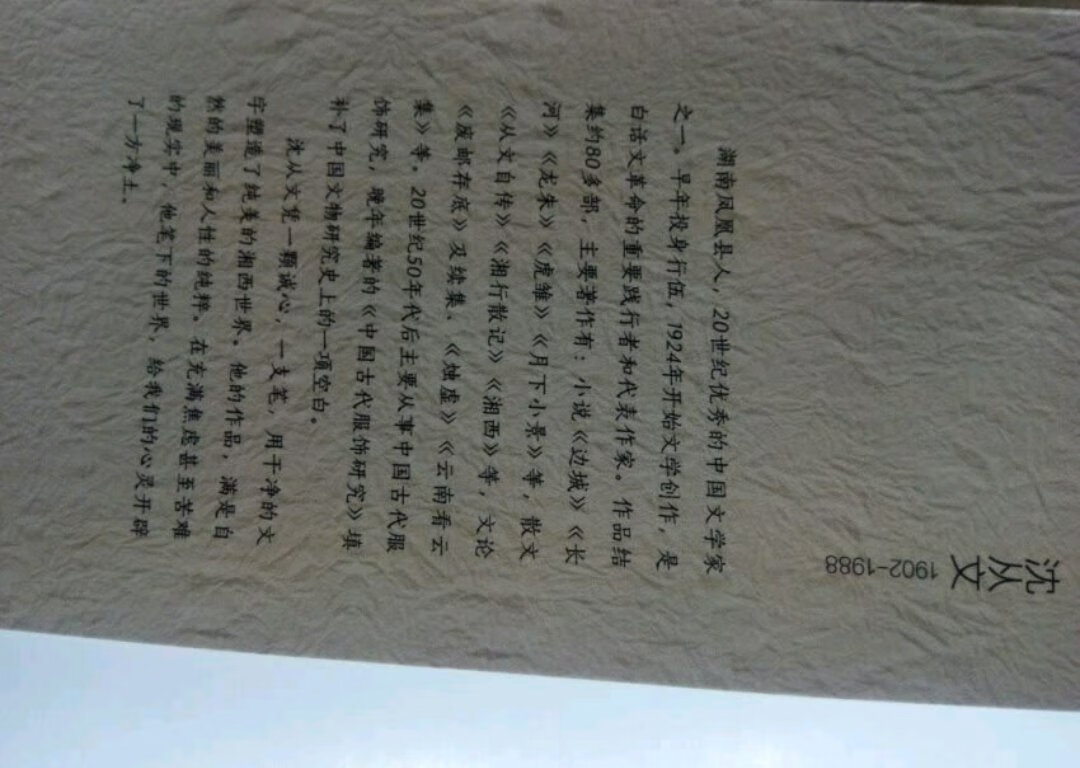 沈从文
1902-1988
湖南凤凰县人，20世纪优秀的中国文学家
之一。早年投身行伍，1924年开始文学创作，是
白话文革命的重要践行者和代表作家。作品结
集约80多部，主要著作有：小说《边城》《长
河》《龙朱》《虎雏》《月下小景》等，散文
《从文自传》《湘行散记》《湘西》等，文论
《废邮存底》及续集、《烛虚》《云南看云
集》等。20世纪50年代后主要从事中国古代服
饰研究，晚年编著的《中国古代服饰研究》填
补了中国文物研究史上的一项空白。
沈从文凭一颗诚心，一支笔，用干净的文
字塑造了纯美的湘西世界。他的作品，满是自
然的美丽和人性的纯粹。在充满焦虑甚至苦难
的现实中，他笔下的世界，给我们的心灵开辟
了一方净土。